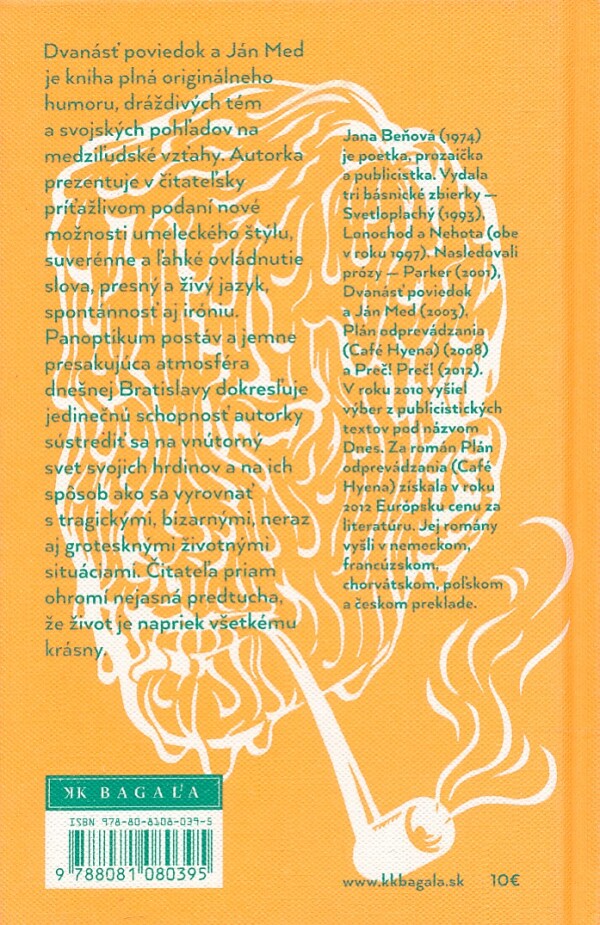 Dvanásť poviedok a Ján Med
je kniha plná originálneho
humoru, dráždivých tém
a svojských pohľadov na
medziľudské vzťahy. Autorka
prezentuje v čitateľsky
príťažlivom podaní nové
možnosti umeleckého štýlu,
suverénne a ľahké ovládnutie
slova, presný a živý jazyk,
spontánnosť aj iróniu.
Panoptikum postáv a jemne
presakujúca atmosféra
dnešnej Bratislavy dokresľuje
jedinečnú schopnosť autorky
sústrediť sa na vnútorný
svet svojich hrdinov a na ich
spôsob ako sa vyrovnať
s tragickými, bizarnými, neraz
aj grotesknými životnými
situáciami. Čitateľa priam
ohromí nejasná predtucha,
že život je napriek všetkému
krásny.
Jana Beňová (1974)
je poetka, prozaička
a publicistka. Vydala
tri básnické zbierky —
Svetloplachý (1993),
Lonochod a Nehota (obe
v roku 1997). Nasledovali
prózy — Parker (2001),
Dvanásť poviedok
a Ján Med (2003),
Plán odprevádzania
(Café Hyena) (2008)
a Preč! Preč! (2012).
V roku 2010 vyšiel
výber z publicistických
textov pod názvom
Dnes. Za román Plán
odprevádzania (Café
Hyena) získala v roku
2012 Európsku cenu za
literatúru. Jej romány
vyšli v nemeckom,
francúzskom,
chorvátskom, poľskom
a českom preklade.
KK BAGAĽA
ISBN 978-80-8108-039-5
9 788081 080395
www.kkbagala.sk 10€